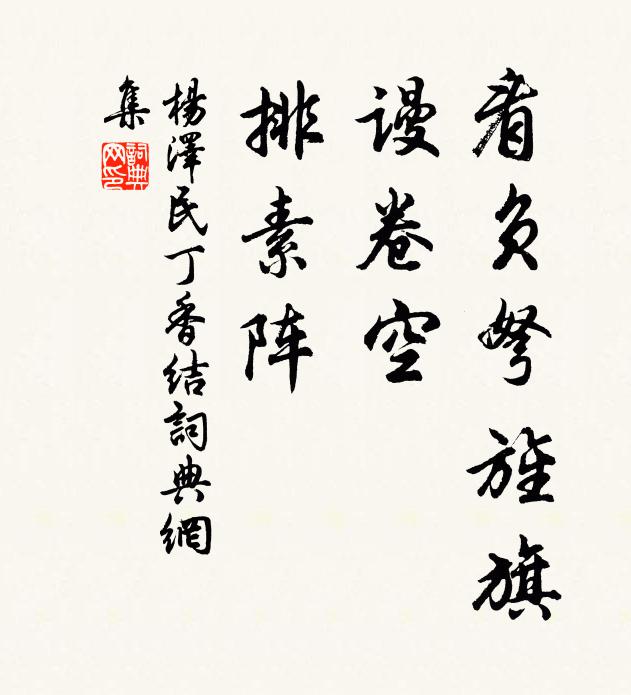 看负弩旌旗
谩卷空
排素阵
楊澤民丁香结詞典網
集
詞典网印